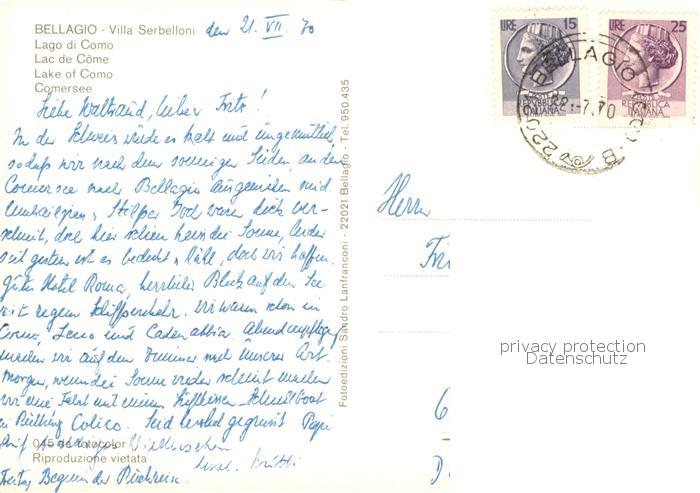 BELLAGIO - Villa Serbelloni den 21. VII. 70
Lago di Como
Lac de Côme
Lake of Como
Comersee
Liebe Waltraud, lieber Fritz!
In der Schweiz wurde es kalt und ungemütlich,
sodaß wir nach dem sonnigen Süden, an den
Comersee nach Bellagio ausgewichen sind.
Umbrailpass, Stilfser Joch waren dick ver-
schneit, doch hier schien heiss die Sonne, leider
seit gestern ist es bedeckt u. kühl, doch wir hoffen.
gutes Hotel Roma, herrlicher Blick auf den See
mit regem Schiffsverkehr. Wir waren schon in
Como, Lecco und Cadenabbia. Abendempfang
machen wir auf dem Zimmer nach unserer Art.
Morgen, wenn die Sonne wieder scheint machen
wir eine Fahrt mit einem Luftkissen-Schnellboot
in Richtung Colico. Seid herzlich gegrüsst Papi
Auf Wiedersehen
045 46 fotocolor
Riproduzione vietata
Freitag Beginn der Rückreise.
Fotoedizioni Sandro Lanfranconi - 22021 Bellagio - Tel. 950.435
LIRE 15
POSTE
REPVBBLICA
ITALIANA
LIRE 25
REPVBBLICA
ITALIANA
22021 BELLAGIO (CO) - B
22-7.70
Herrn
Fri
privacy protection
Datenschutz
6
D